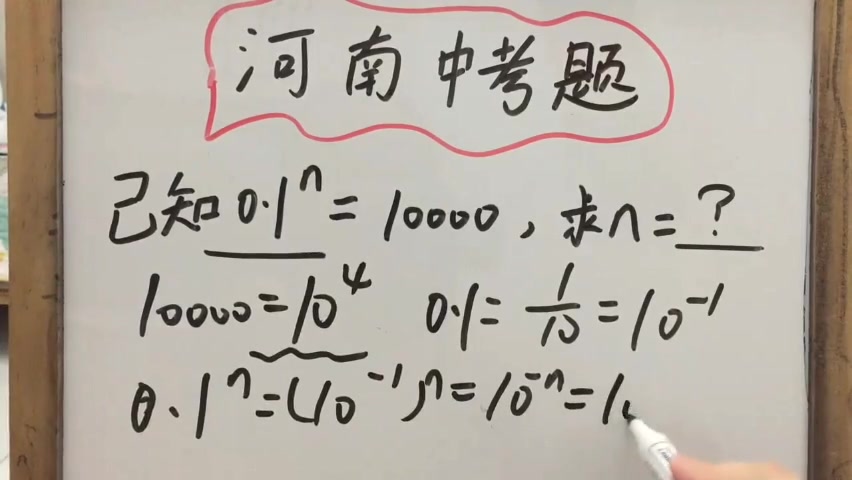 河南中考题
已知0.1ⁿ=10000,求n=?
10000=10⁴ 0.1=1/10=10⁻¹
0.1ⁿ=(10⁻¹)ⁿ=10⁻ⁿ=1